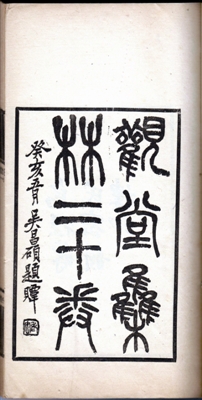 觀堂集
林二十卷
癸亥首吳昌碩題耑